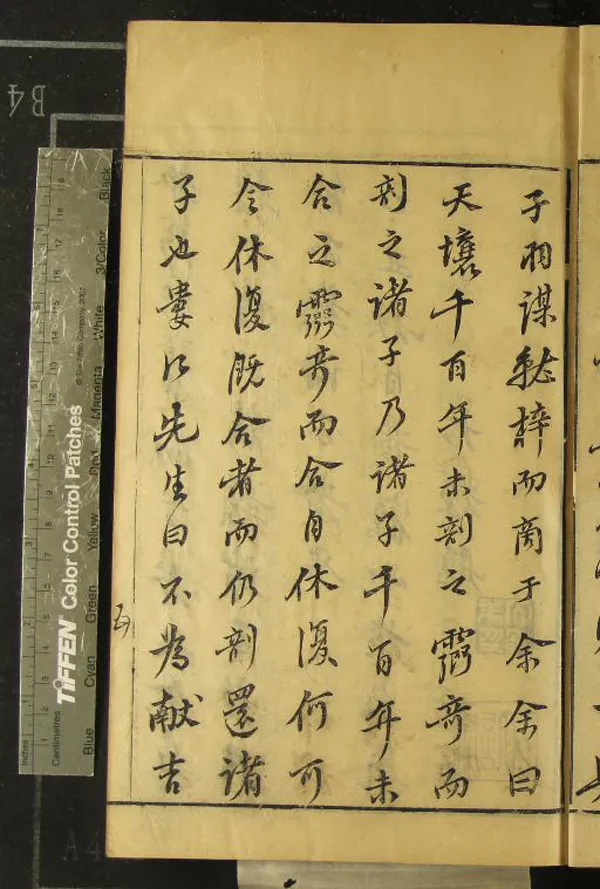 子羽謀就梓而商于余余曰
天壤千百年未剖之靈奇而
剖之諸子乃諸子千百年未
合之靈奇而合自休復何可
令休復既合者而仍剖還諸
子也婁江先生曰不為献吉
B4
A4
TIFFEN Color Control Patches
© The Tiffen Company, 2007
Inches
Centimetres
Blue Cyan Green Yellow Red Magenta White 3/Color Black